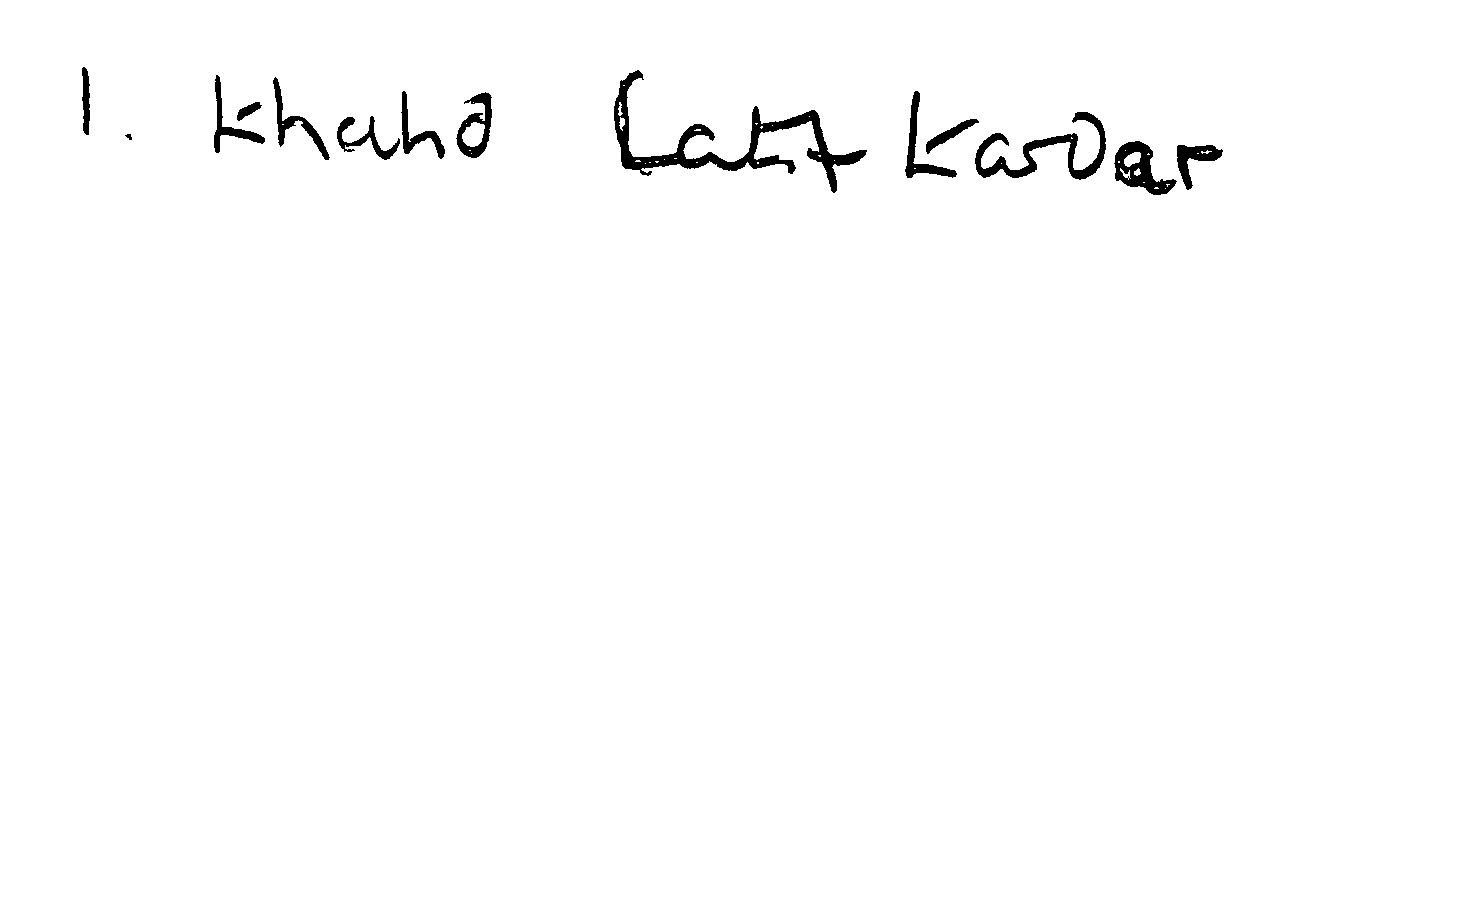 1. Khalid Latif Kardar